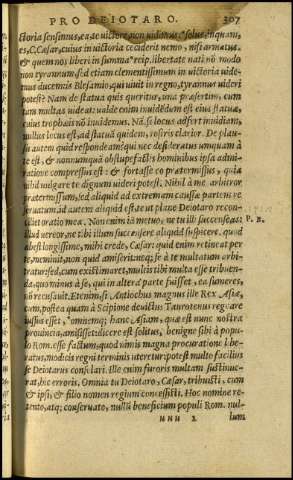 PRO DEIOTARO. 307
ctoria sensimus, ea te victore non vidimus. solus, inquam,
es, C. Cæsar, cuius in victoria ceciderit nemo, nisi armatus.
& quem nos liberi in summa recip. libertate nati nõ modo
non tyrannum, sed etiam clementissimum in victoria
ducem is Blesamio, qui vivit in regno, tyrannus videri
potest? Nam de statua quis queritur, una præsertim, cum
tam multas videat: valde enim invidẽdum est eius statuæ,
cuius tropæis nõ invidemus. Nã, se locus adfert invidiam,
nullus locus est, ad statuã quidem, rostris clarior. De plau-
su autem quid respondeam? qui nec desideratus umquam à
te est, & nonnumquã obstupefactis hominibus ipsa admi-
ratione compressus est: & fortasse eo prætermissus, quia
nihil vulgare te dignum videri potest. Nihil à me arbitror
prætermissum, sed aliquid ad extremam caussæ partem re
servatum. id autem aliquid est, te ut plane Deiotaro recon-
ciliet oratio mea. Non enim iã metuo, ne tu illi succenseas:
illud vereor, ne tibi illum succensere aliquid suspicere. quod
abest longissime, mihi crede, Cæsar: quid enim retineat per
te, meminit, non quid amiserit: neq; se à te multatum arbi-
tratur: sed, cum existimaret, multis tibi multa esse tribuen-
da, quo minus à se, qui in altera parte fuisset, ea sumeres,
nõ recusavit. Etenim, si Antiochus magnus ille Rex Asiæ,
cum, postea quam à Scipione devictus Taurotenus regnare
iussus esset, omnemq; hanc Asiam, quæ est nunc nostra
provincia, amisisset, dicere est solitus, benigne sibi à popu-
lo Rom. esse factum, quod nimis magna procuratione libe-
ratus, modicis regni terminis uteretur: potest multo facilius
se Deiotarus consolari. Ille enim furoris multam sustinue-
rat, hic erroris. Omnia tu Deiotaro, Cæsar, tribuisti, cum
& ipsi, & filio nomen regium concessisti. Hoc nomine re-
tento, atq; conservato, nullũ beneficium populi Rom. nul-
P. R.
NNN 2 lum